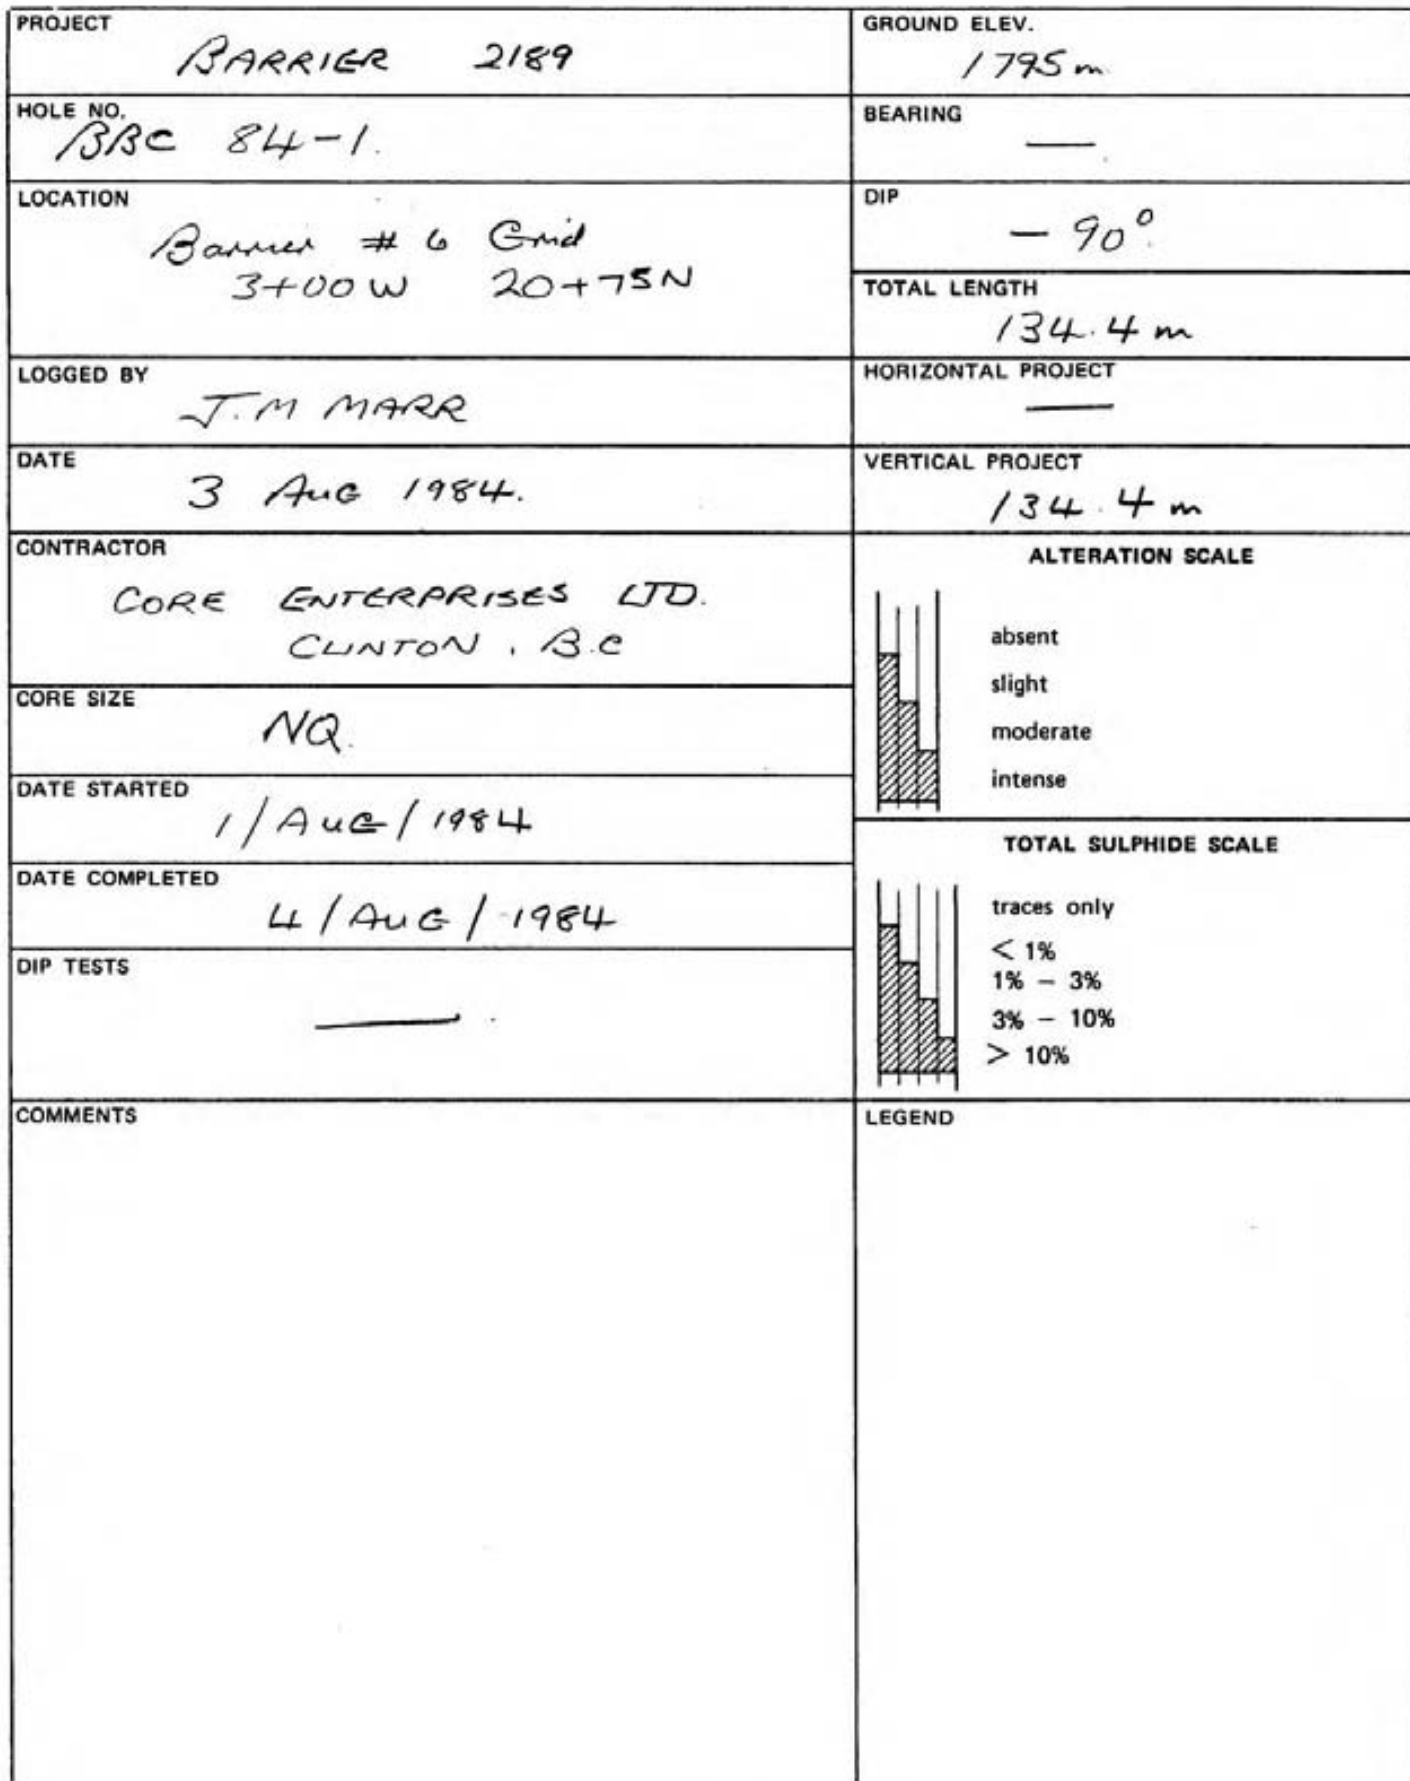 PROJECT
BARRIER 2189
HOLE NO.
BBC 84-1.
LOCATION
Barrier # 6 Grid
3+00W 20+75N
LOGGED BY
J.M MARR
DATE
3 AUG 1984.
CONTRACTOR
CORE ENTERPRISES LTD.
CLINTON, B.C
CORE SIZE
NQ.
DATE STARTED
1/AUG/1984
DATE COMPLETED
4/AUG/1984
DIP TESTS
—
COMMENTS
GROUND ELEV.
1795 m.
BEARING
—
DIP
- 90°
TOTAL LENGTH
134.4 m
HORIZONTAL PROJECT
—
VERTICAL PROJECT
134.4 m
ALTERATION SCALE
absent
slight
moderate
intense
TOTAL SULPHIDE SCALE
traces only
< 1%
1% – 3%
3% – 10%
> 10%
LEGEND